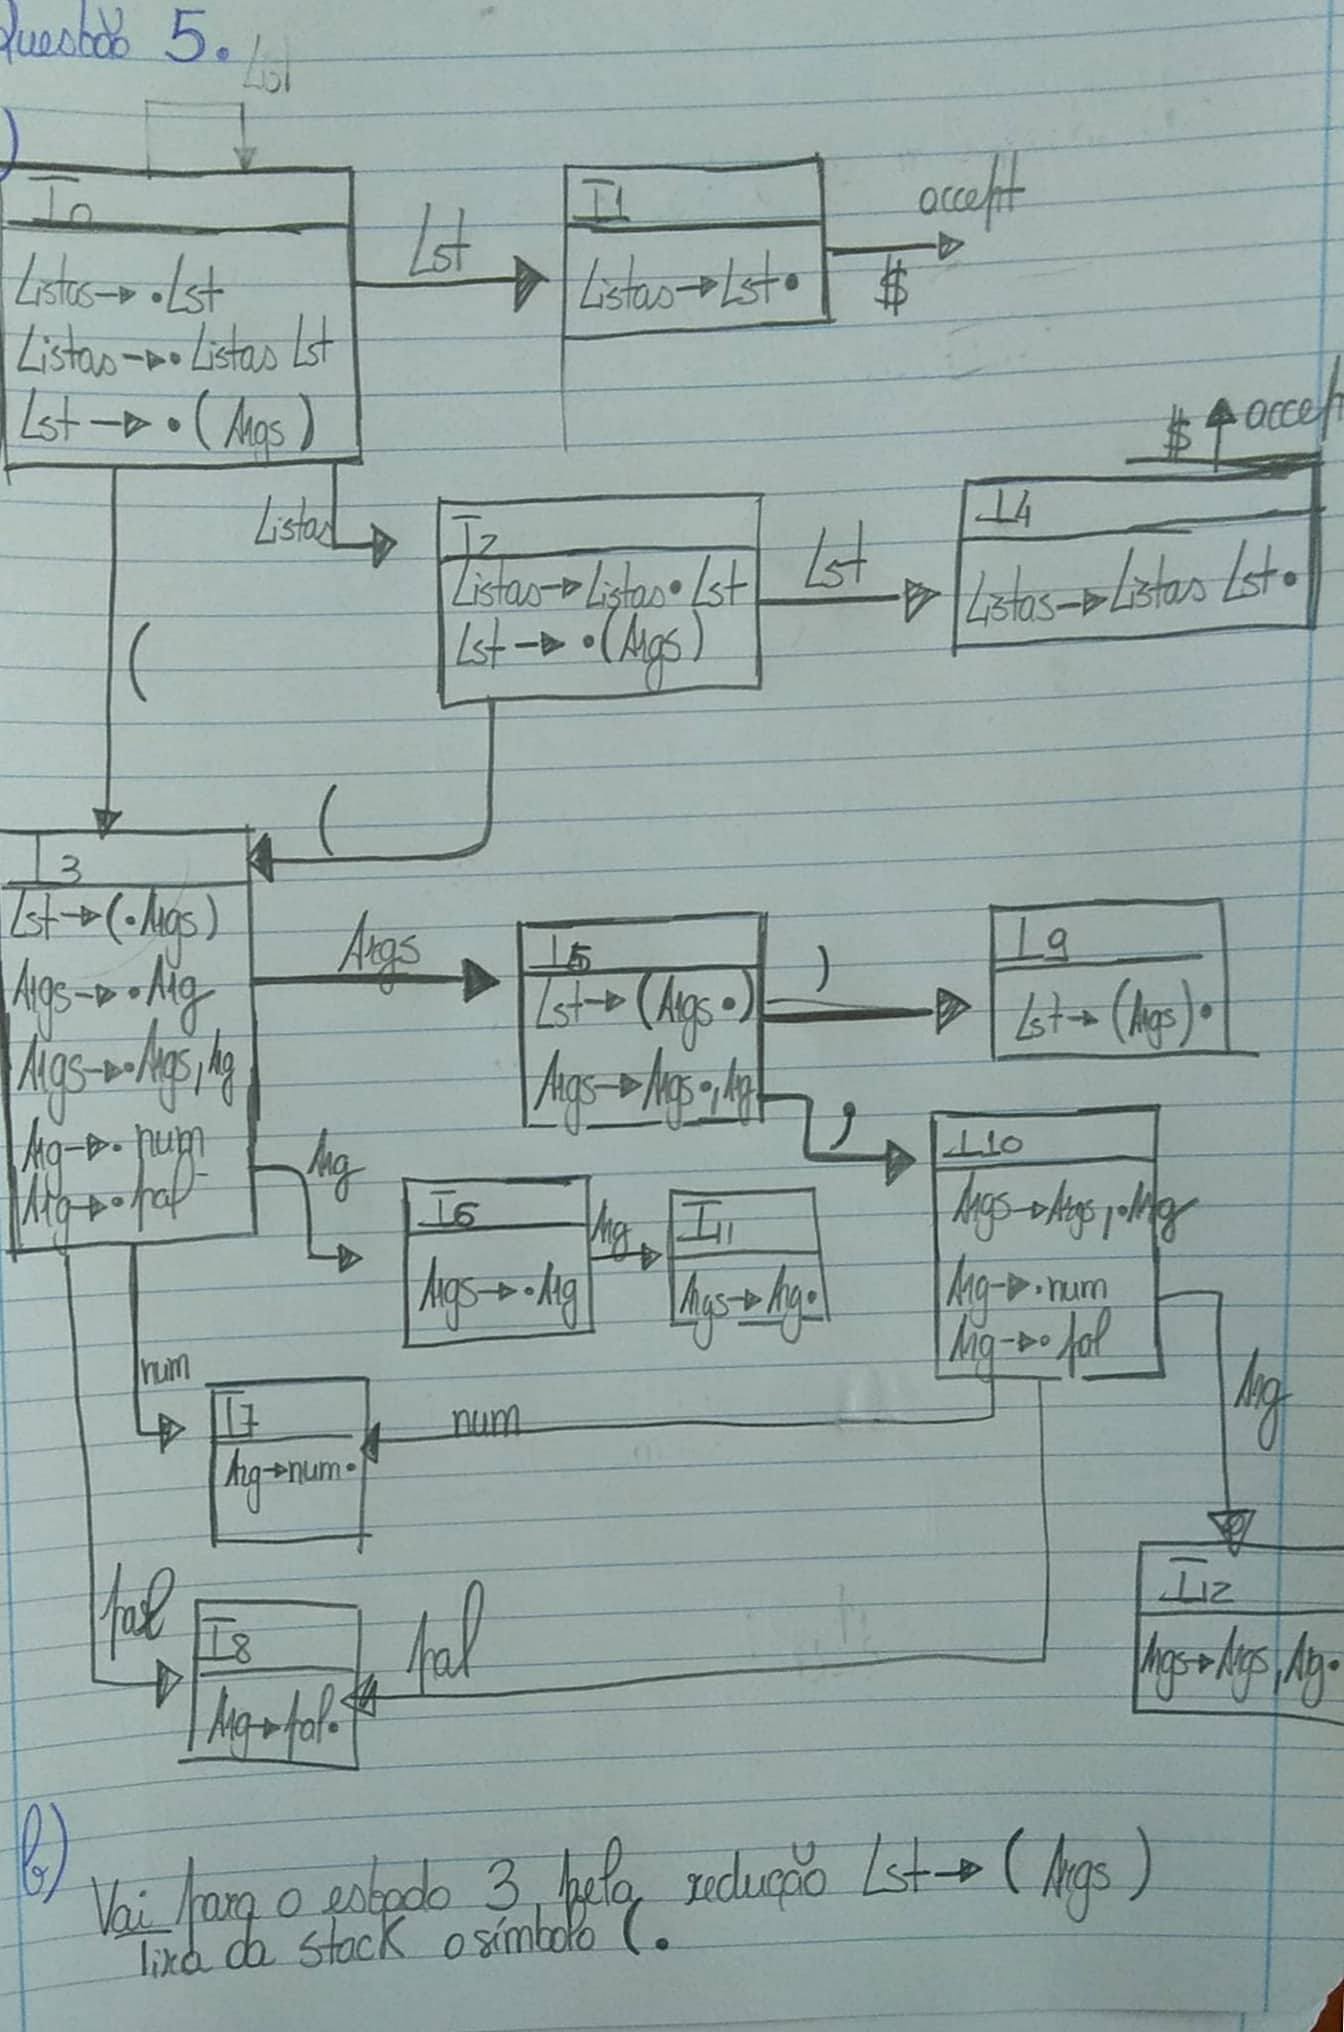 Questão 5.
Lst
)
I0
Listas → •Lst
Listas → •Listas Lst
Lst → •(Args)
Lst
I1
Listas → Lst•
accept
$
Listas
I2
Listas → Listas•Lst
Lst → •(Args)
Lst
I4
Listas → Listas Lst•
$ accept
(
(
I3
Lst → (•Args)
Args → •Arg
Args → •Args, Arg
Arg → • num
Arg → • pal
Args
I5
Lst → (Args•)
Args → Args•, Arg
)
I9
Lst → (Args)•
,
I10
Args → Args,•Arg
Arg → •num
Arg → •pal
Arg
I6
Args → •Arg
Arg
I11
Args → Arg•
num
I7
Arg → num•
num
Arg
pal
I8
Arg → pal•
pal
I12
Args → Args, Arg•
b)
Vai para o estado 3 pela redução Lst → (Args)
tira da stack o símbolo (.